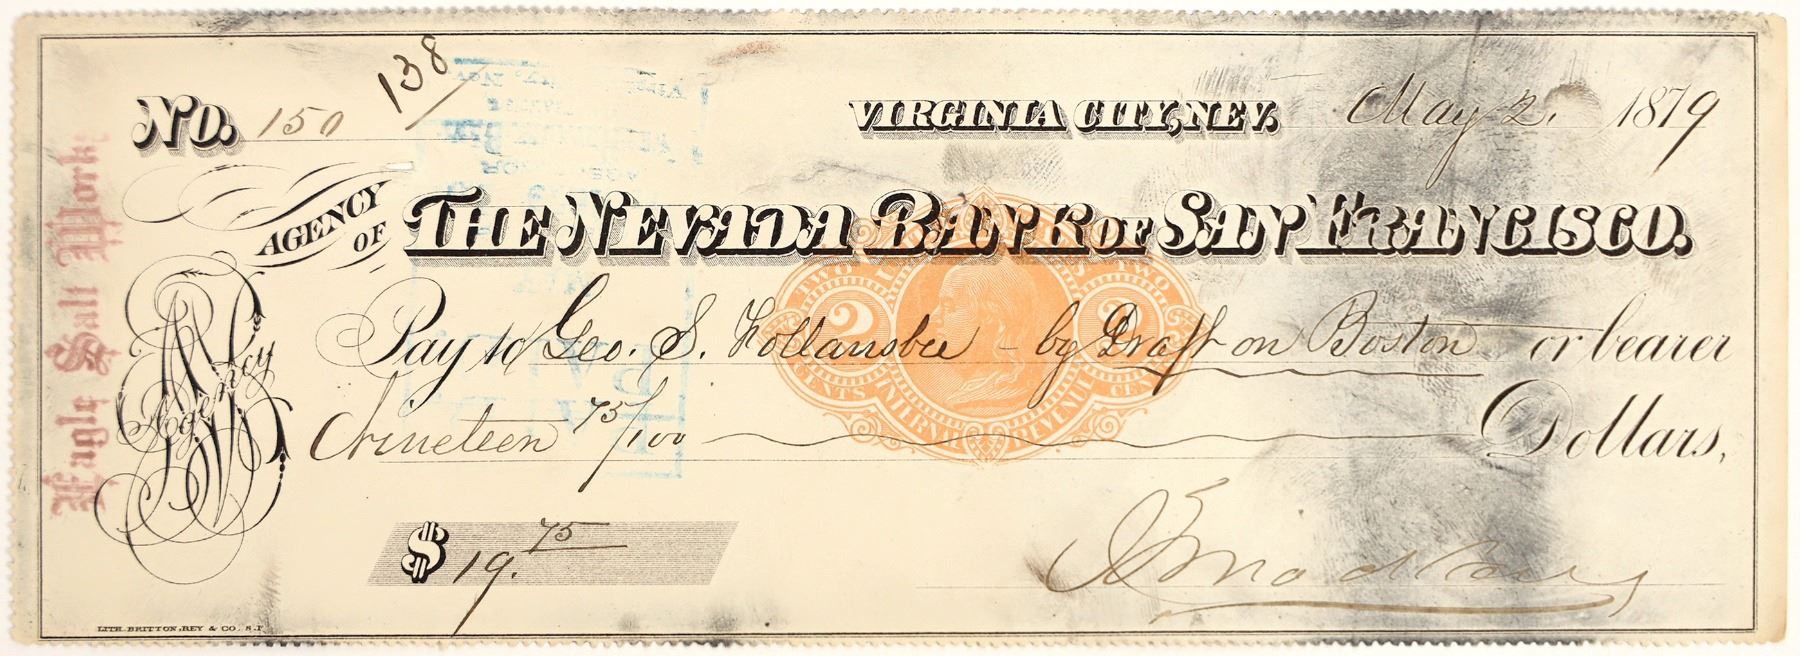 138
No. 150
VIRGINIA CITY, NEV. May 2. 1879
AGENCY OF THE NEVADA BANK OF SAN FRANCISCO.
TWO TWO
2 2
CENTS INTERNAL REVENUE CENTS
Pay to Geo. S. Hollansbee - by Draft on Boston or bearer
Nineteen 75/100 Dollars,
$ 19. 75
Agency
Eagle Salt Work
LITH. BRITTON, REY & CO. S.F.